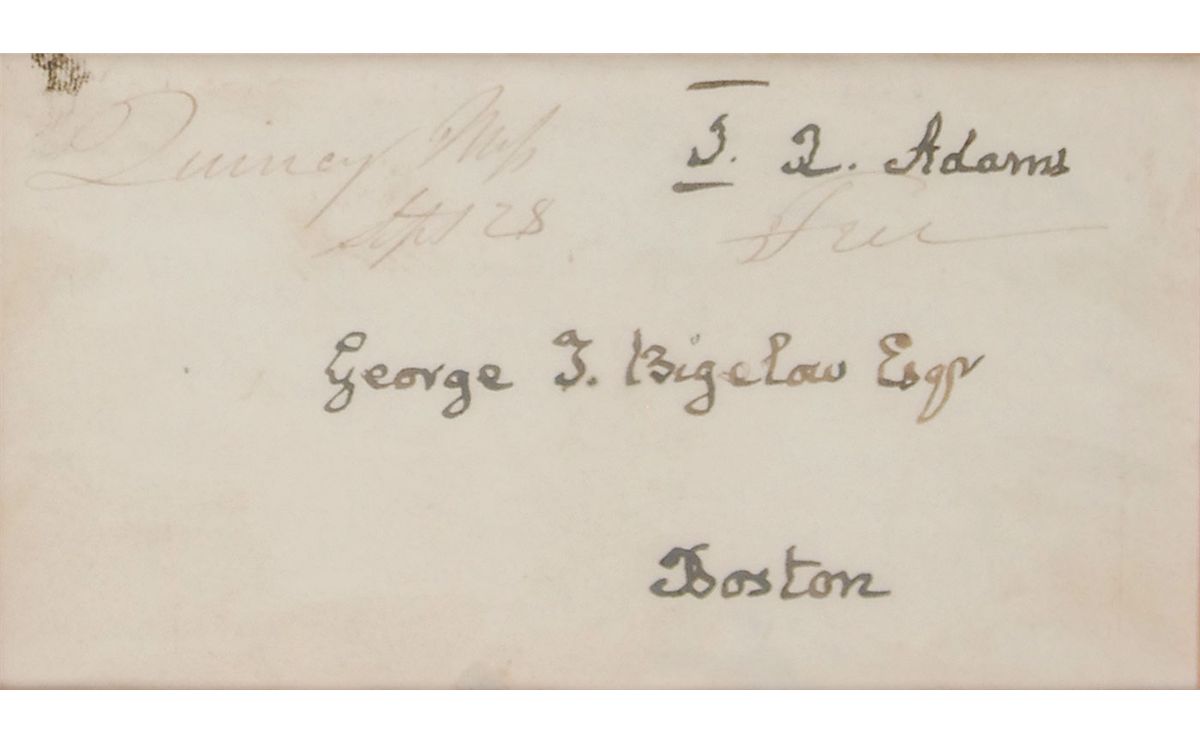 Quincy Ms
Sept 28
J. Q. Adams
Free
George T. Bigelow Esqr
Boston